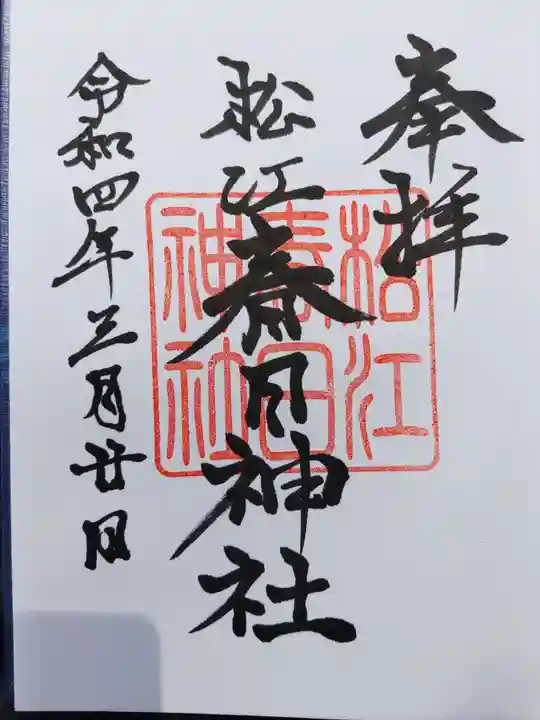 奉拝
松江春日神社
松江
春日
神社
令和四年三月廿日